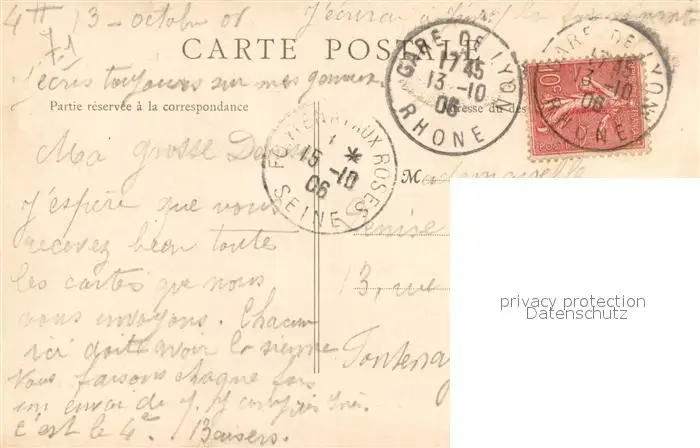 4
13 - octobre 06
CARTE POSTALE
J'écris toujours sur mes genoux.
Partie réservée à la correspondance
GARE DE LYON
1745
13 -10
06
RHONE
GARE DE LYON
45
13 -10
06
RHONE
10
POSTES
Ma grosse
FONTENAY AUX ROSES
1 *
15 -10
06
SEINE
Mademoiselle
J'espère que vous
Denise
recevez bien toute
les cartes que nous
13, rue
vous envoyons. Chacun
ici doit avoir la sienne
Fontenay
Vous faisons chaque fois
un envoi de
c'est le 4e. Baisers.
privacy protection
Datenschutz